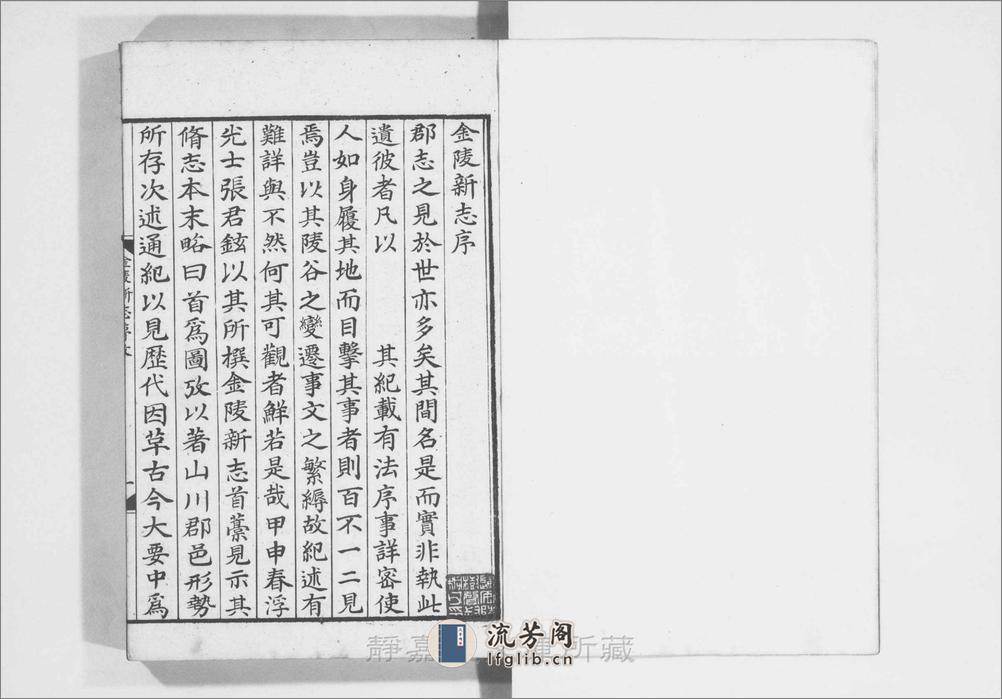 金陵新志序
郡志之見於世亦多矣其間名是而實非執此
遺彼者凡以　　其紀載有法序事詳密使
人如身履其地而目擊其事者則百不一二見
焉豈以其陵谷之變遷事文之繁縟故紀述有
難詳與不然何其可觀者鮮若是哉甲申春浮
光士張君鉉以其所撰金陵新志首藁見示其
脩志本末略曰首爲圖攷以著山川郡邑形勢
所存次述通紀以見歴代因革古今大要中爲
金陵新志序文
一
靜嘉 所藏
流芳阁
lfglib.cn